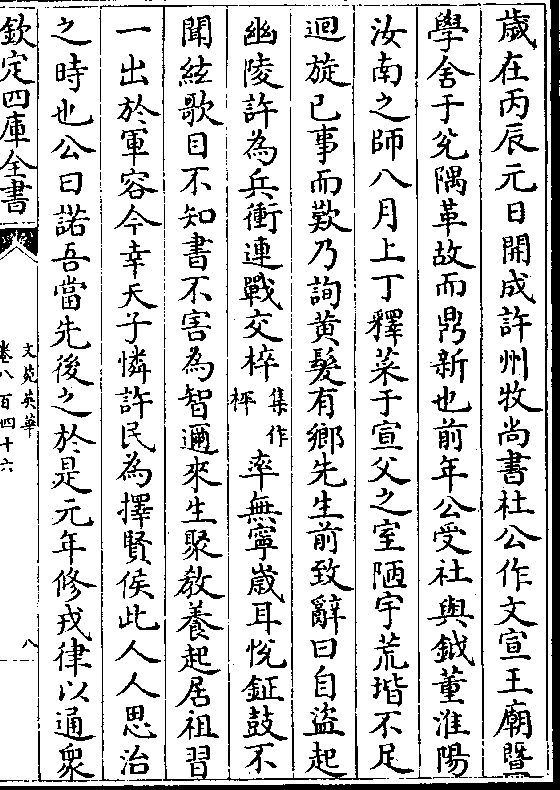 歳在丙辰元日開成許州牧尚書社公作文宣王廟暨
學舍于兊隅革故而鼎新也前年公受社輿鉞董淮陽
汝南之師八月上丁釋菜于宣父之室陋宇荒堦不足
迴旋已事而歎乃詢黄髮有鄉先生前致辭曰自盜起
幽陵許為兵衝連戰交梓集作枰率無寧嵗耳悅鉦鼓不
聞絃歌目不知書不害為智邇來生聚教養起居祖習
一出於軍容今幸天子憐許民為擇賢侯此人人思治
之時也公曰諾吾當先後之於是元年修戎律以通衆
欽定四庫全書
文苑英華
卷八百四十六
八